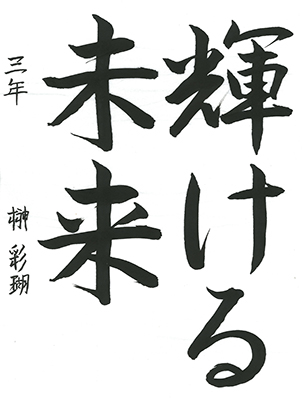 輝ける
未来
三年 榊 彩瑚